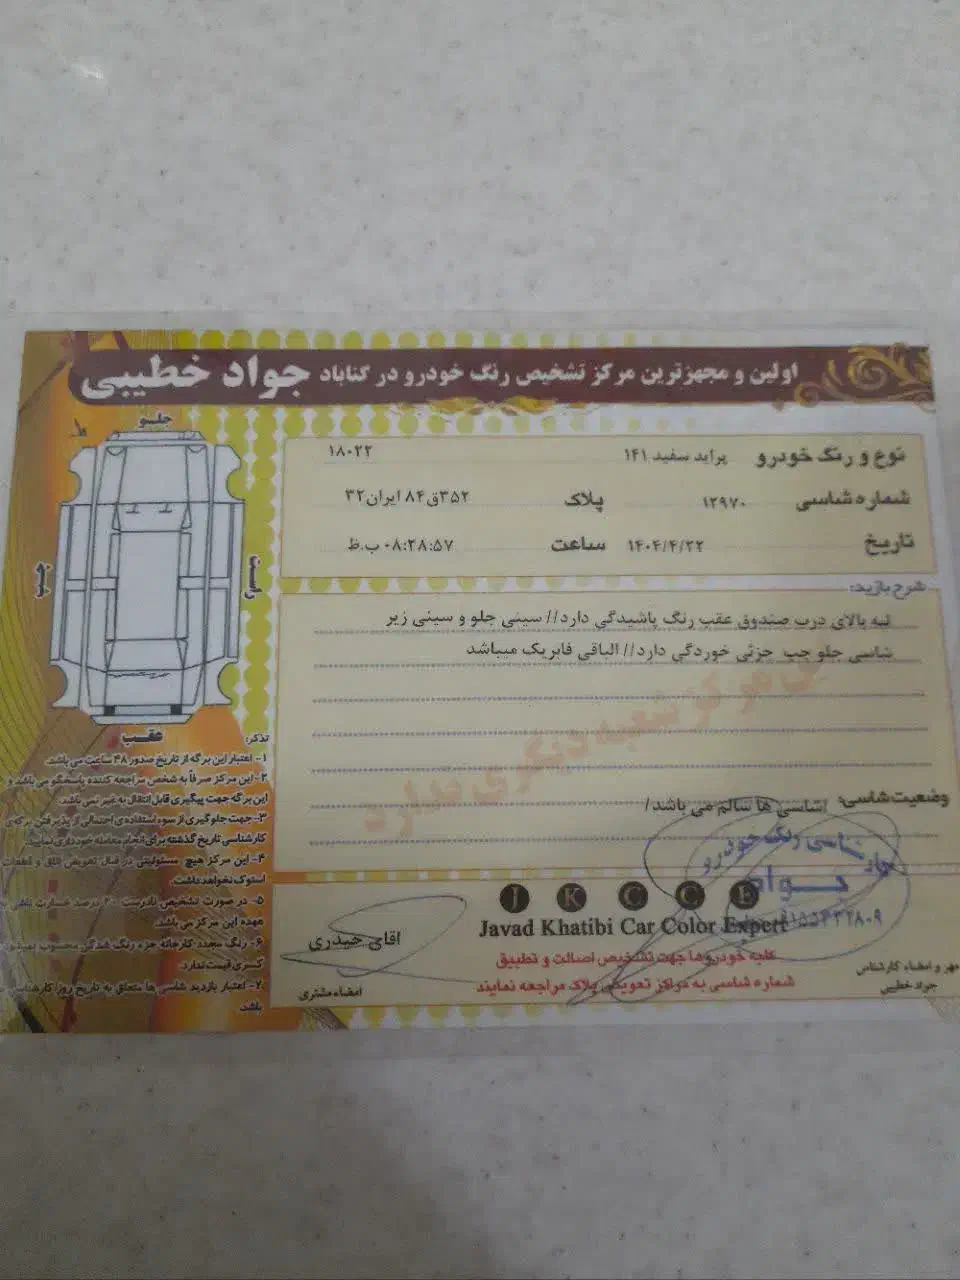 اولین و مجهزترین مرکز تشخیص رنگ خودرو در گناباد جواد خطیبی
جلو
چپ
راست
عقب
نوع و رنگ خودرو پراید سفید ۱۴۱ ۱۸۰۲۲
شماره شاسی ۱۲۹۷۰ پلاک ۳۵۲ق۸۴ ایران۳۲
تاریخ ۱۴۰۴/۴/۲۲ ساعت ۰۸:۲۸:۵۷ ب.ظ
شرح بازدید:
لبه بالای درب صندوق عقب رنگ پاشیدگی دارد// سینی جلو و سینی زیر
شاسی جلو چپ جزئی خوردگی دارد// الباقی فابریک میباشد
این مرکز شعبه دیگری ندارد
وضعیت شاسی: /شاسی ها سالم می باشد/
تذکر:
۱- اعتبار این برگه از تاریخ صدور ۴۸ ساعت می باشد.
۲- این مرکز صرفاً به شخص مراجعه کننده پاسخگو می باشد و
این برگه جهت پیگیری قابل انتقال به غیر نمی باشد.
۳- جهت جلوگیری از سوء استفاده ی احتمالی از پذیرفتن برگه ی
کارشناسی تاریخ گذشته برای انجام معامله خودداری نمایید.
۴- این مرکز هیچ مسئولیتی در قبال تعویض اتاق و قطعات
استوک نخواهد داشت.
۵- در صورت تشخیص نادرست ۲۰ درصد خسارت
عهده این مرکز می باشد.
۶- رنگ مجدد کارخانه جزء رنگ شدگی محسوب
کسری قیمت ندارد.
۷- اعتبار بازدید شاسی ها متعلق به تاریخ روز کارشناسی
باشد.
J K C C E
Javad Khatibi Car Color Expert
کلیه خودروها جهت تشخیص اصالت و تطبیق
شماره شاسی به مراکز تعویض پلاک مراجعه نمایند
آقای حیدری
امضاء مشتری
رنگ خودرو
جواد
مهر و امضاء کارشناس
جواد خطیبی